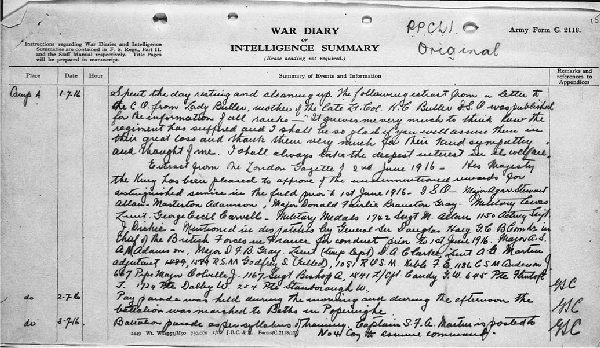 WAR DIARY
OF
INTELLIGENCE SUMMARY
(Erase heading not required.)
PPCLI.
Original
Army Form C. 2118.
Instructions regarding War Diaries and Intelligence
Summaries are contained in F. S. Regs., Part II.
and the Staff Manual respectively. Title Pages
will be prepared in manuscript.
Place Date Hour Summary of Events and Information Remarks and references to Appendices
Camp A 1-7-16 Spent the day resting and cleaning up. The following extract from a letter to
the C.O. from Lady Buller, mother of the late Lt. Col. H.C. Buller D.S.O. was published
for the information of all ranks — "It grieves me very much to think how the
regiment has suffered and I shall be so glad if you will assure them in
their great loss and thank them very much for their kind sympathy
and thought of me. I shall always take the deepest interest in its welfare.
Extract from the London Gazette of 2nd June 1916 — His Majesty
the King has been pleased to approve of the undermentioned rewards for
distinguished service in the field prior to 1st June 1916 — D.S.O — Major Agar Stewart
Allan Masterton Adamson, Major Donald Fairlie Branston Gray. Military Cross
Lieut. George Cecil Carvell — Military Medals 1762 Sergt M. Allan 1150 Sergt
J. Dickie — Mentioned in dispatches by General Sir Douglas Haig G.C.B. Comdr in
Chief of the British Forces in France for conduct prior to 1st June 1916. Major A.S.
A.M. Adamson, Major D.F.B. Gray, Lieut (Temp Capt) Clarke, Lieut A.G. Martin
adjutant R.S.M Godfrey S. (Killed), 1051 R.Q.M.S. F.G. C.S.M.
Pipe Major Colville J. 1167 Sergt Bishop A. L/Cpl Candy F.W. 645 Pte
J. Pte Dalby W. Pte Stanborough W.
do 2-7-16 Pay parade was held during the morning and during the afternoon the
battalion was marched to Baths in Poperinghe. GSC
do 3-7-16 Battalion parade as per syllabus of training. Captain S.F.A. Martin is posted to
No 4 Coy to assume command. GSC